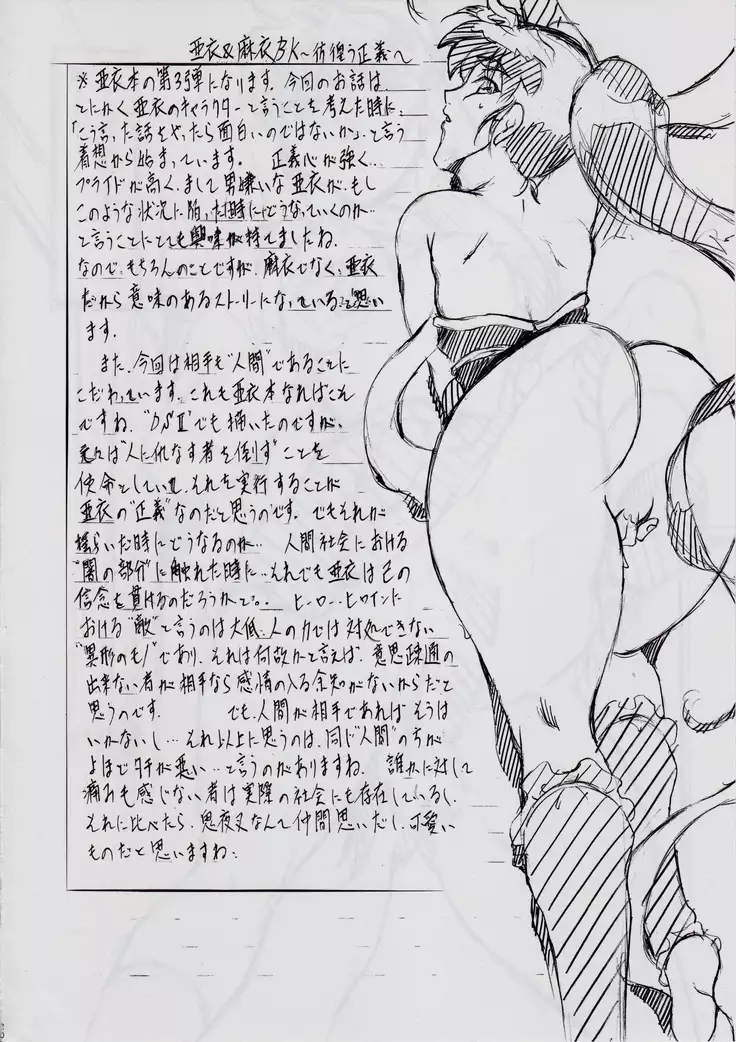 亜衣&麻衣BK～彷徨う正義～
※亜衣本の第3弾になります。今回のお話は、
とにかく亜衣のキャラクターと言うことを考えた時に、
「こう言った話をやったら面白いのではないか」と言う
着想から始まっています。 正義心が強く…
プライドが高く、まして男嫌いな亜衣が、もし
このような状況に陥った時にどうなっていくのか…
と言うことにとても興味が持てましたね。
なので、もちろんのことですが、麻衣でなく、亜衣
だから意味のあるストーリーになっていると思い
ます。
また、今回は相手も"人間"であることに
こだわっています。これも亜衣本なればこそ
ですね。"DSⅡ"でも描いたのですが、
"人に仇なす者を倒す"ことを
使命としていて、それを実行することが
亜衣の"正義"なのだと思うのです。でもそれが
揺らいだ時にどうなるのか… 人間社会における
"闇の部分"に触れた時に…それでも亜衣は己の
信念を貫けるのだろうかと。 ヒーロー、ヒロインに
おける"敵"と言うのは大低、人の力では対処できない
"異形のモノ"であり、それは何故かと言えば、意思疎通の
出来ない者が相手なら感情の入る余知がないからだと
思うのです。 でも、人間が相手であればそうは
いかないし…それ以上に思うのは、同じ"人間"の方が
よほどタチが悪い…と言うのがありますね。 誰かに対して
痛みも感じない者は実際の社会にも存在しているし、
それに比べたら、鬼夜叉なんて仲間思いだし、可愛い
ものだと思いますね。